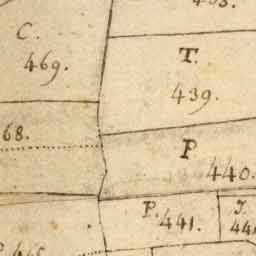 C.
469.
T.
439.
68.
P
440.
P.
441.
J.